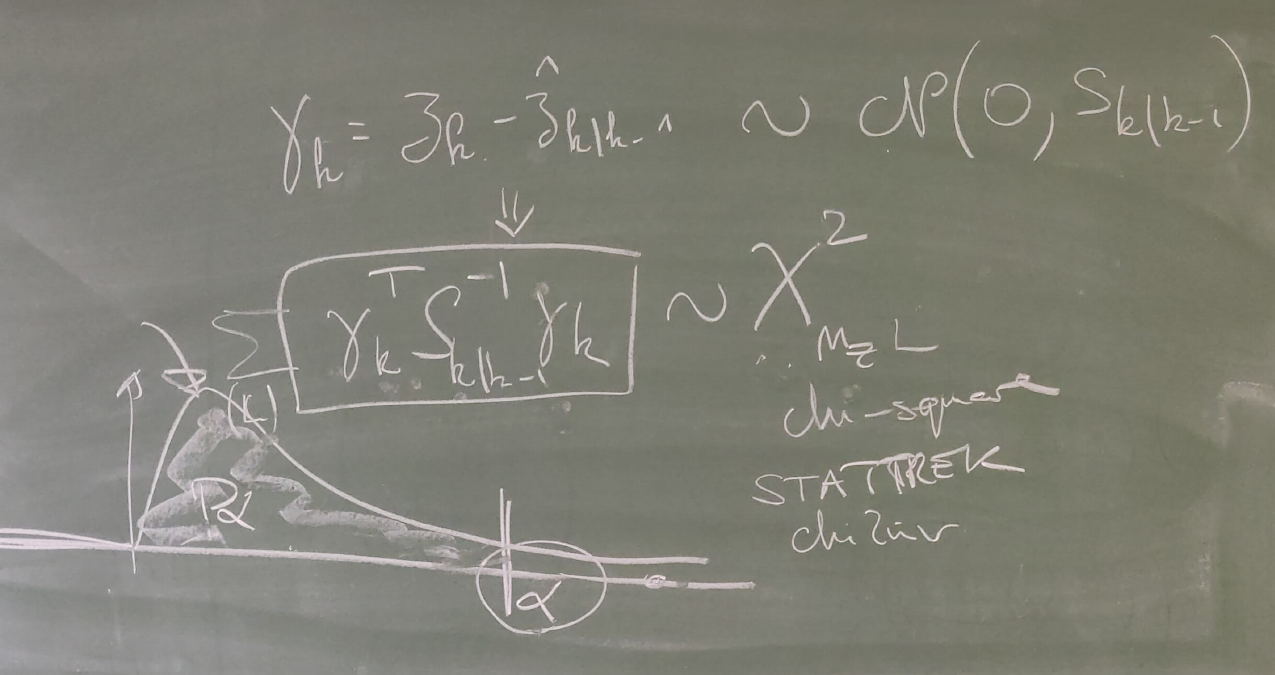 γ_k = z_k - ẑ_{k|k-1} ~ N(0, S_{k|k-1})
⇓
Σ_{(L)} γ_k^T S^{-1}_{k|k-1} γ_k ~ χ²_{n_z L}
chi-square
STATTREK
chi2inv
α